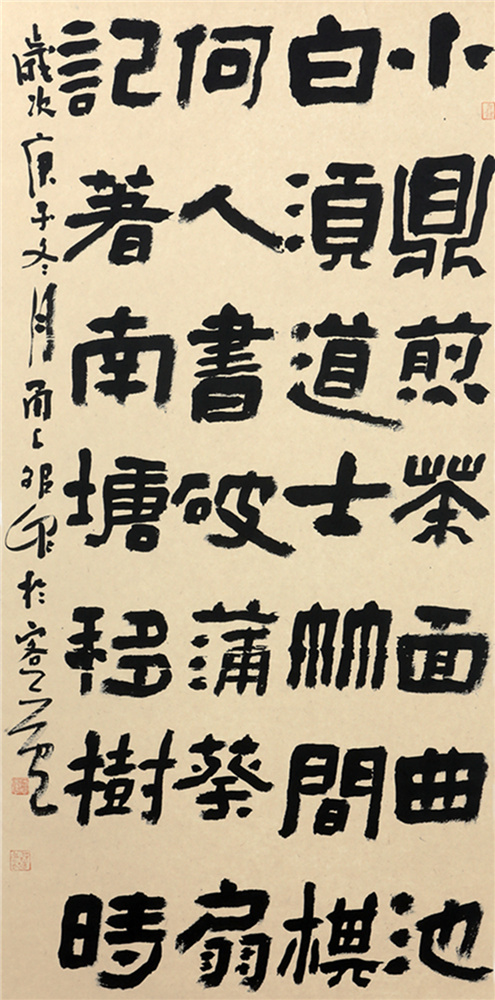 小鼎煎茶面曲池
白須道士竹間棋
何人書破蒲葵扇
記著南塘移樹時
歲次庚子冬月